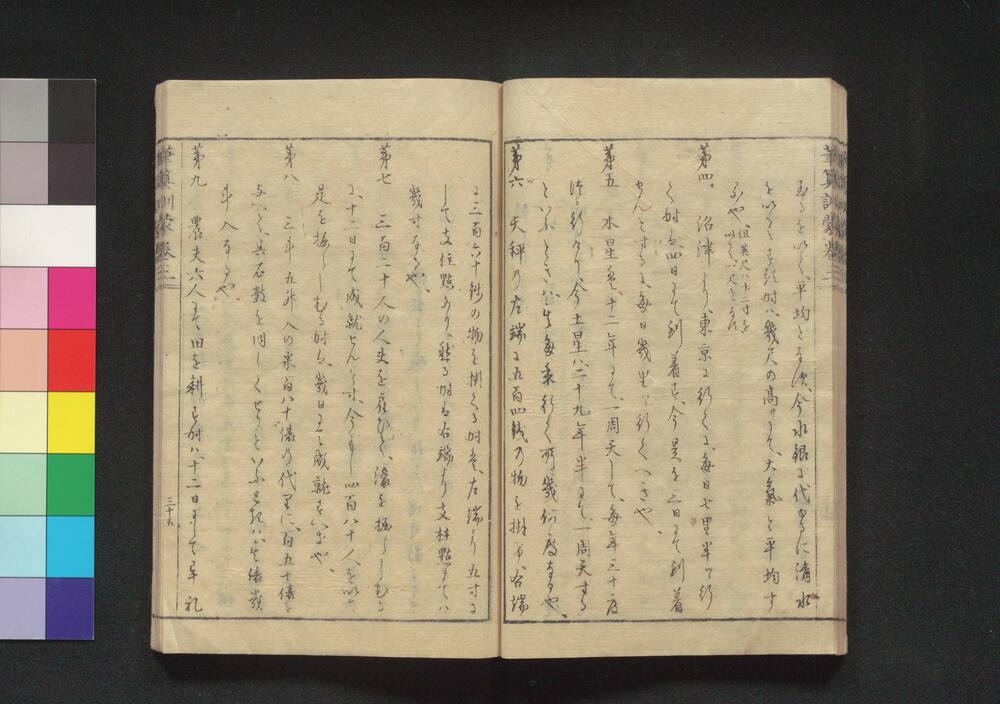 至るを以て、平均となす、今水銀に代ゆるに清水
を以てする時ハ幾尺の高にて、大氣と平均す
るや、但英尺ハ十二寸を以て一尺となす
第四 沼津より東京に行くに、毎日七里半ツヽ行
く時ハ四日にて到着す、今是を三日にて到着
せんとするに、毎日幾里ツヽ行くへきや、
第五 木星ハ、十二年にて、一周天して、毎年三十度
ツヽ行くなり、今土星ハ、二十九年半にて、一周天する
といふときハ、毎年行く所幾何度なるや、
第六 天秤の左端に五百四錢の物を掛け、右端
に三百六十錢の物を掛くる時ハ、左端より五寸に
して支柱點あり、然る時ハ右端より支柱點まてハ
幾寸なるや、
第七 三百二十人の人夫を以て、濠を掘らしむる
に、十二日にて成就せんとす、今もし四百八十人を以て
是を掘らしむる時ハ、幾日にて成就すへきや、
第八 三斗五升入の米百八十俵の代里に、百五十俵を
与へて、其石數を同しくせんといふときハ、一俵幾
斗入なるや、
第九 農夫六人にて、田を耕す時ハ、十二日にして畢礼
筆算訓蒙 卷二
三十五